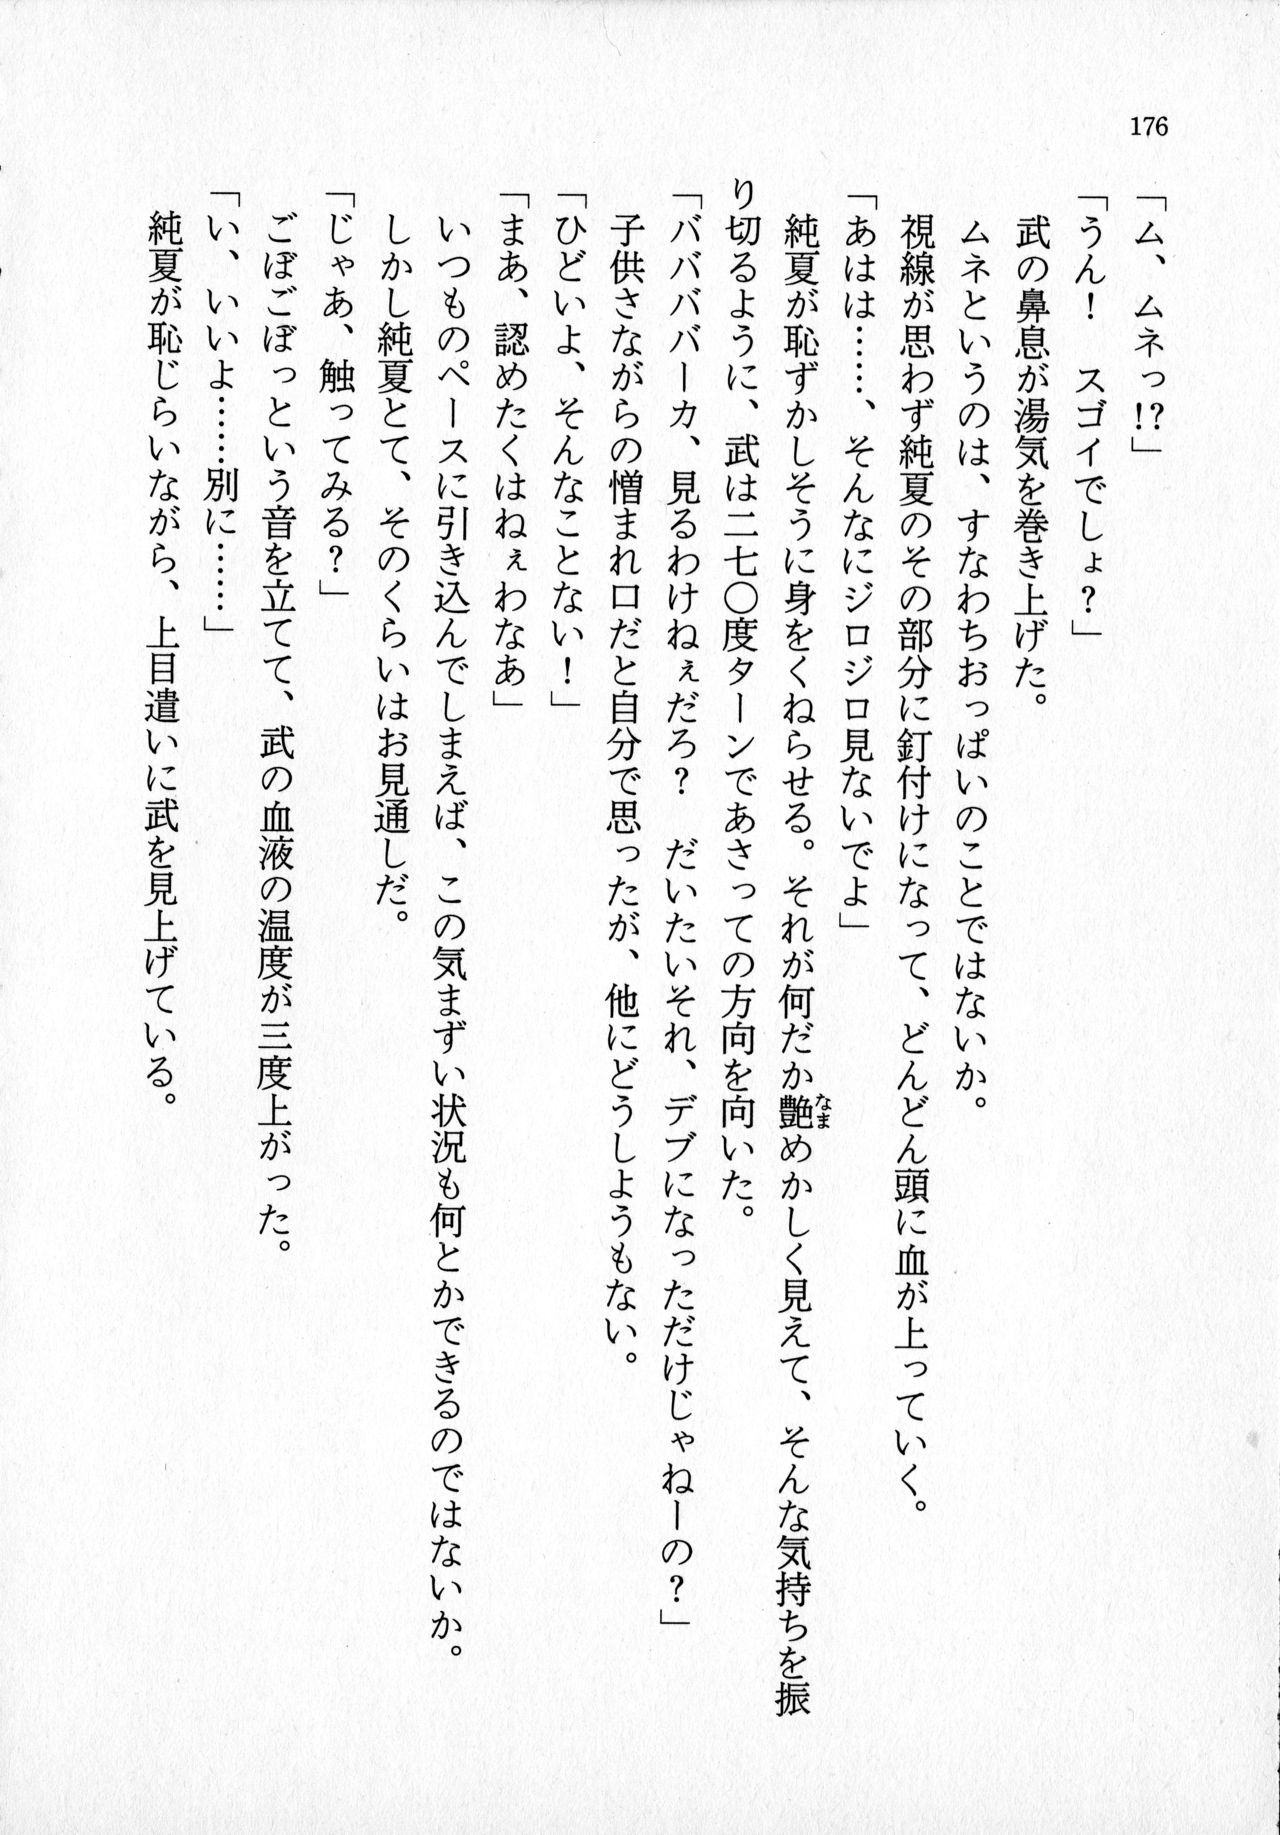 176
「ム、ムネっ!?」
「うん！　スゴイでしょ？」
　武の鼻息が湯気を巻き上げた。
　ムネというのは、すなわちおっぱいのことではないか。
　視線が思わず純夏のその部分に釘付けになって、どんどん頭に血が上っていく。
「あはは……、そんなにジロジロ見ないでよ」
　純夏が恥ずかしそうに身をくねらせる。それが何だか艶めかしく見えて、そんな気持ちを振
なま
り切るように、武は二七〇度ターンであさっての方向を向いた。
「バババババーカ、見るわけねぇだろ？　だいたいそれ、デブになっただけじゃねーの？」
　子供さながらの憎まれ口だと自分で思ったが、他にどうしようもない。
「ひどいよ、そんなことない！」
「まあ、認めたくはねぇわなあ」
　いつものペースに引き込んでしまえば、この気まずい状況も何とかできるのではないか。
　しかし純夏とて、そのくらいはお見通しだ。
「じゃあ、触ってみる？」
　ごぼごぼっという音を立てて、武の血液の温度が三度上がった。
「い、いいよ……別に……」
　純夏が恥じらいながら、上目遣いに武を見上げている。